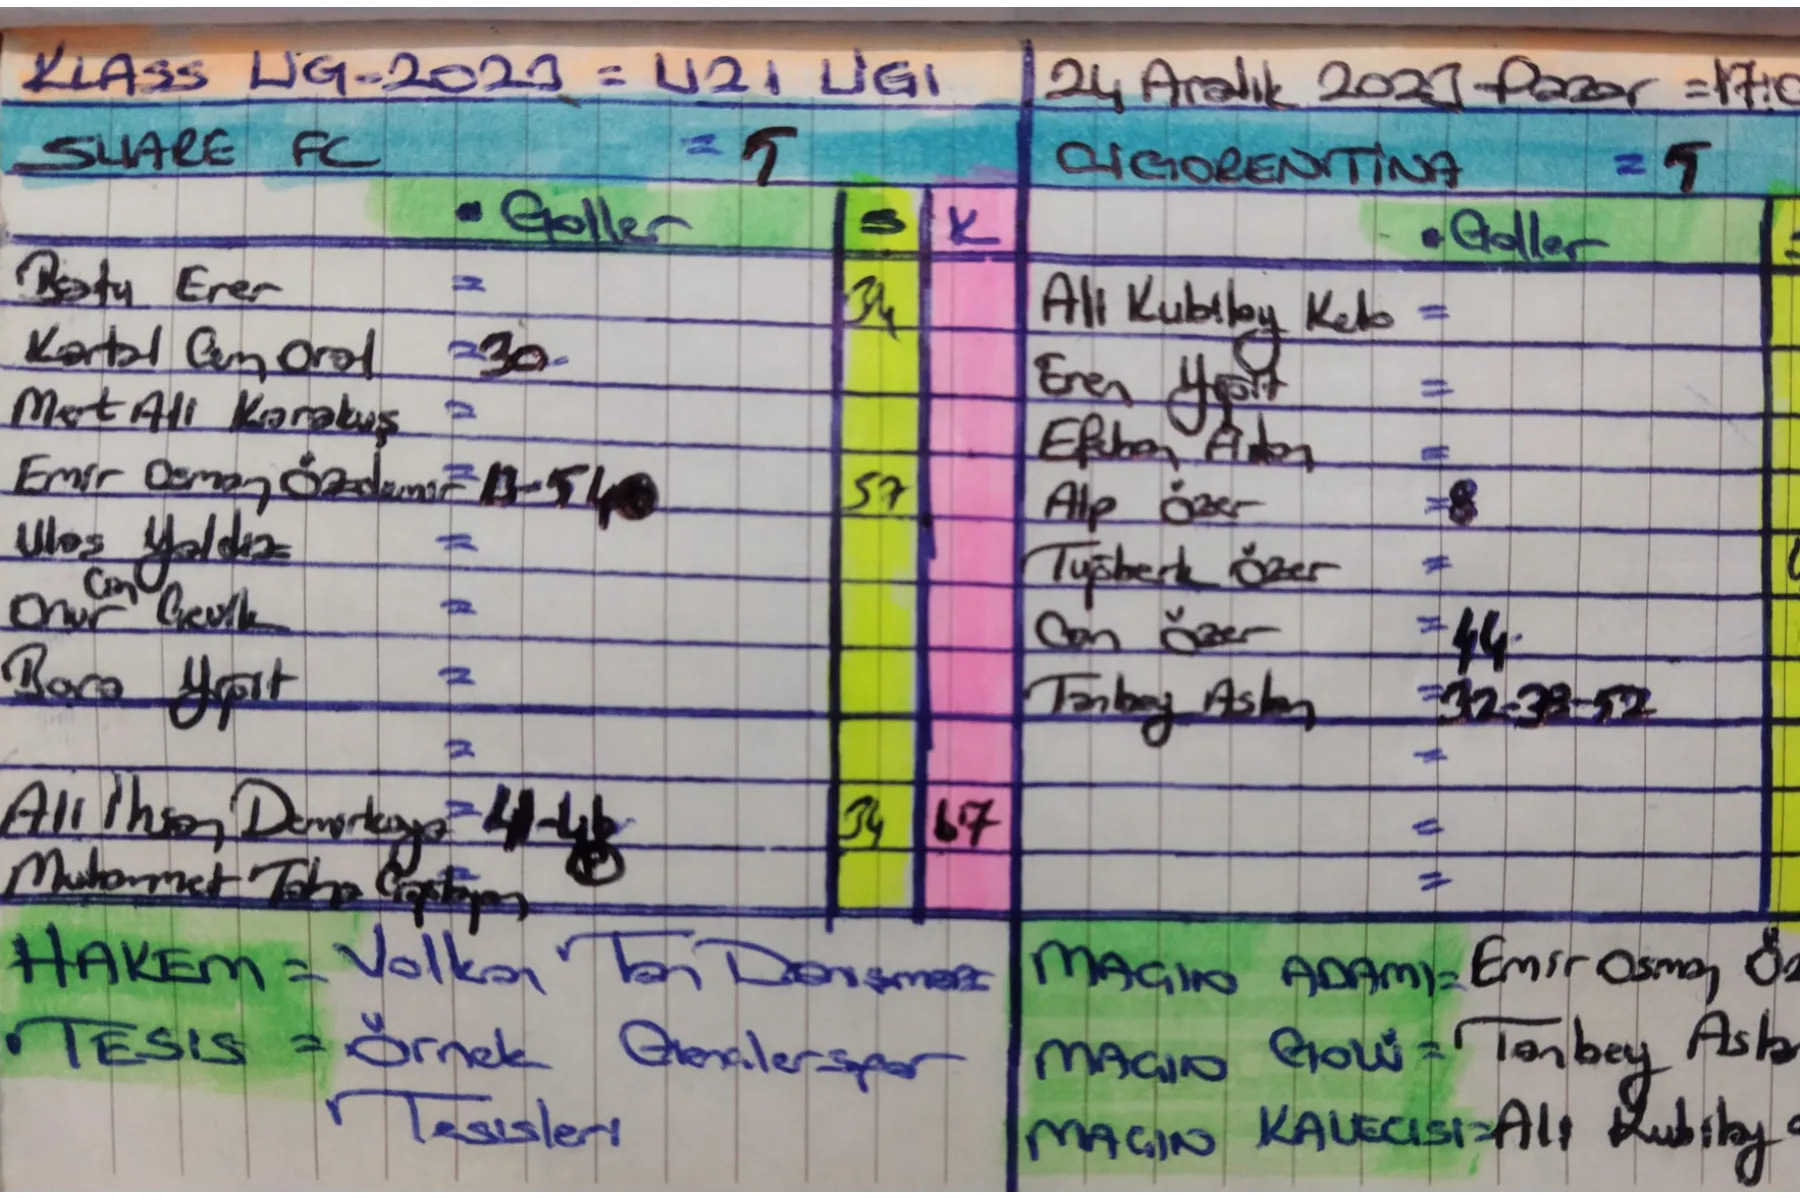 KLASS LİG-2023 = U21 LİGİ
24 Aralık 2023-Pazar =17:0
SHARE FC = 5
CİGORENTİNA = 5
• Goller S K
• Goller
Batu Erer = 34
Kartal Cem Oral =30
Mert Ali Karakuş =
Emir Osman Özdemir = 13-54 57
Ulaş Yaldız =
Onur Can Çevik =
Bora Yiğit =
=
Ali İhsan Demirkaya = 41-46 34 67
P
Muhammet Taha =
Ali Kubilay =
Eren Yiğit =
Efehan Aslan =
Alp Özer =8
Tuğberk Özer =
Can Özer =44
Tanbey Aslan =32-38-52
=
=
=
HAKEM = Volkan Tan Danışmaz
• TESİS = Örnek Gençlerspor
Tesisleri
MAÇIN ADAMI= Emir Osman Öz
MAÇIN GOLÜ = Tanbey Asla
MAÇIN KALECİSİ=Ali Kubilay